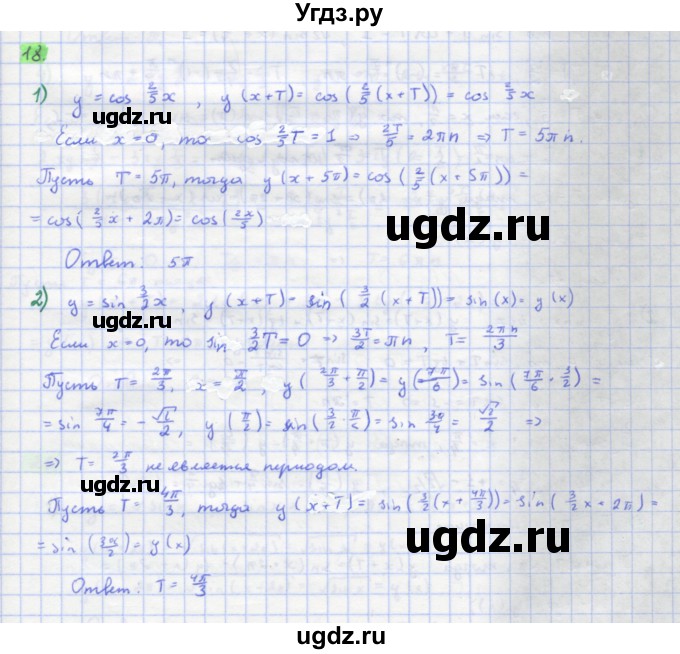 Угдз.ру
18.
1) y = cos 2/5 x , y (x+T) = cos ( 2/5 (x+T)) = cos 2/5 x
Если x=0, то cos 2/5 T = 1 ⇒ 2T/5 = 2πn ⇒ T = 5πn.
Пусть T = 5π, тогда y (x+5π) = cos ( 2/5 (x+5π)) =
= cos ( 2/5 x + 2π) = cos ( 2x/5 )
ugdz.ru
ugdz.ru
Ответ: 5π
2) y = sin 3/2 x , y (x+T) = sin ( 3/2 (x+T)) = sin (x) = y (x)
ugdz.ru
Если x=0, то sin 3/2 T = 0 ⇒ 3T/2 = πn , T = 2πn/3
Пусть T = 2π/3, x = π/2, y ( 2π/3 + π/2 ) = y ( 7π/6 ) = sin ( 7π/6 · 3/2 ) =
= sin 7π/4 = - √2/2, y ( π/2 ) = sin ( 3/2 · π/2 ) = sin 3π/4 = √2/2 ⇒
⇒ T = 2π/3 не является периодом.
ugdz.ru
Пусть T = 4π/3, тогда y (x+T) = sin ( 3/2 (x + 4π/3 )) = sin ( 3/2 x + 2π) =
= sin ( 3x/2 ) = y (x)
ugdz.ru
Ответ: T = 4π/3
ugdz.ru